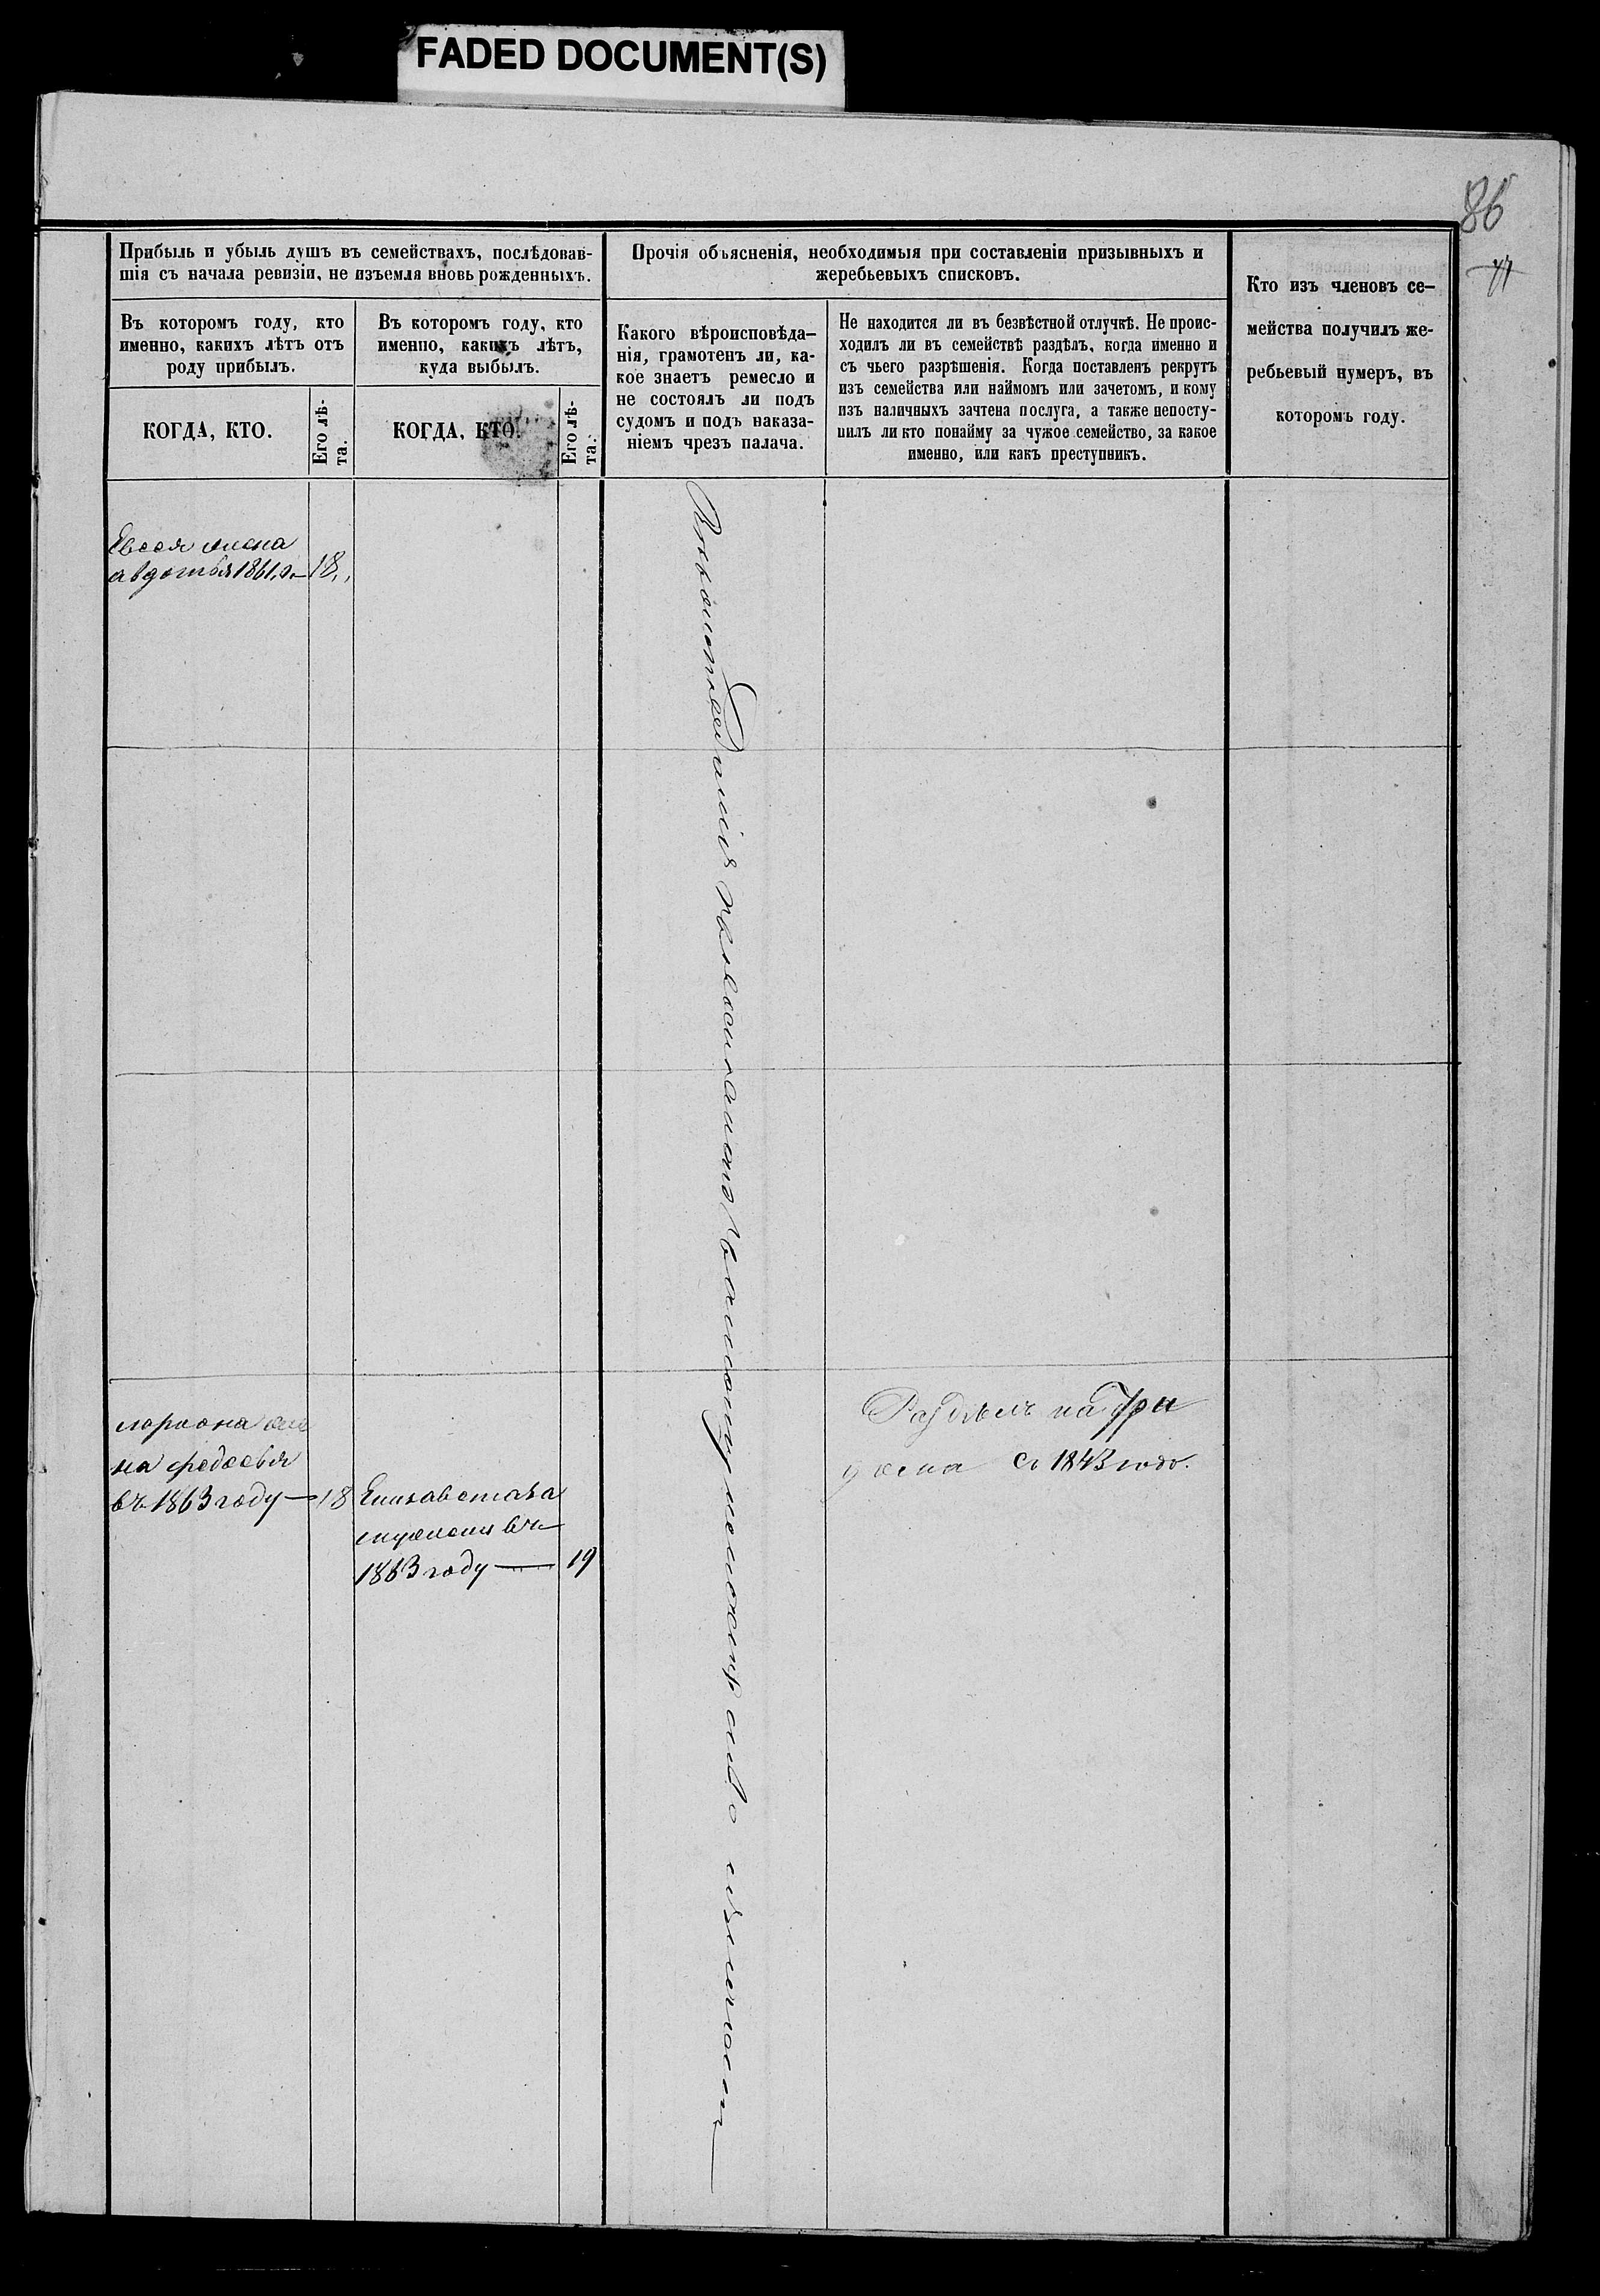 FADED DOCUMENT(S)
86
Прибыль и убыль душъ въ семействахъ, послѣдовав-
шія съ начала ревизіи, не изъемля вновь рожденныхъ.
Въ которомъ году, кто
именно, какихъ лѣтъ отъ
роду прибылъ.
КОГДА, КТО.
Его лѣ-
та.
Въ которомъ году, кто
именно, какихъ лѣтъ,
куда выбылъ.
КОГДА, КТО.
Его лѣ-
та.
Прочія объясненія, необходимыя при составленіи призывныхъ и
жеребьевыхъ списковъ.
Какого вѣроисповѣда-
нія, грамотенъ ли, ка-
кое знаетъ ремесло и
не состоялъ ли подъ
судомъ и подъ наказа-
ніемъ чрезъ палача.
Не находится ли въ безвѣстной отлучкѣ. Не проис-
ходилъ ли въ семействѣ раздѣлъ, когда именно и
съ чьего разрѣшенія. Когда поставленъ рекрутъ
изъ семейства или наймомъ или зачетомъ, и кому
изъ наличныхъ зачтена послуга, а также непосту-
пилъ ли кто понайму за чужое семейство, за какое
именно, или какъ преступникъ.
Кто изъ членовъ се-
мейства получилъ же-
ребьевый нумеръ, въ
которомъ году.
Евсея жена
авдотья 1861 г. 18
лариона же
на федосья
въ 1863 году — 18
Елизавета за
мужемъ въ
1863 году — 19
Вѣроисповѣданія
Раздѣлъ на три
дома съ 1843 года.